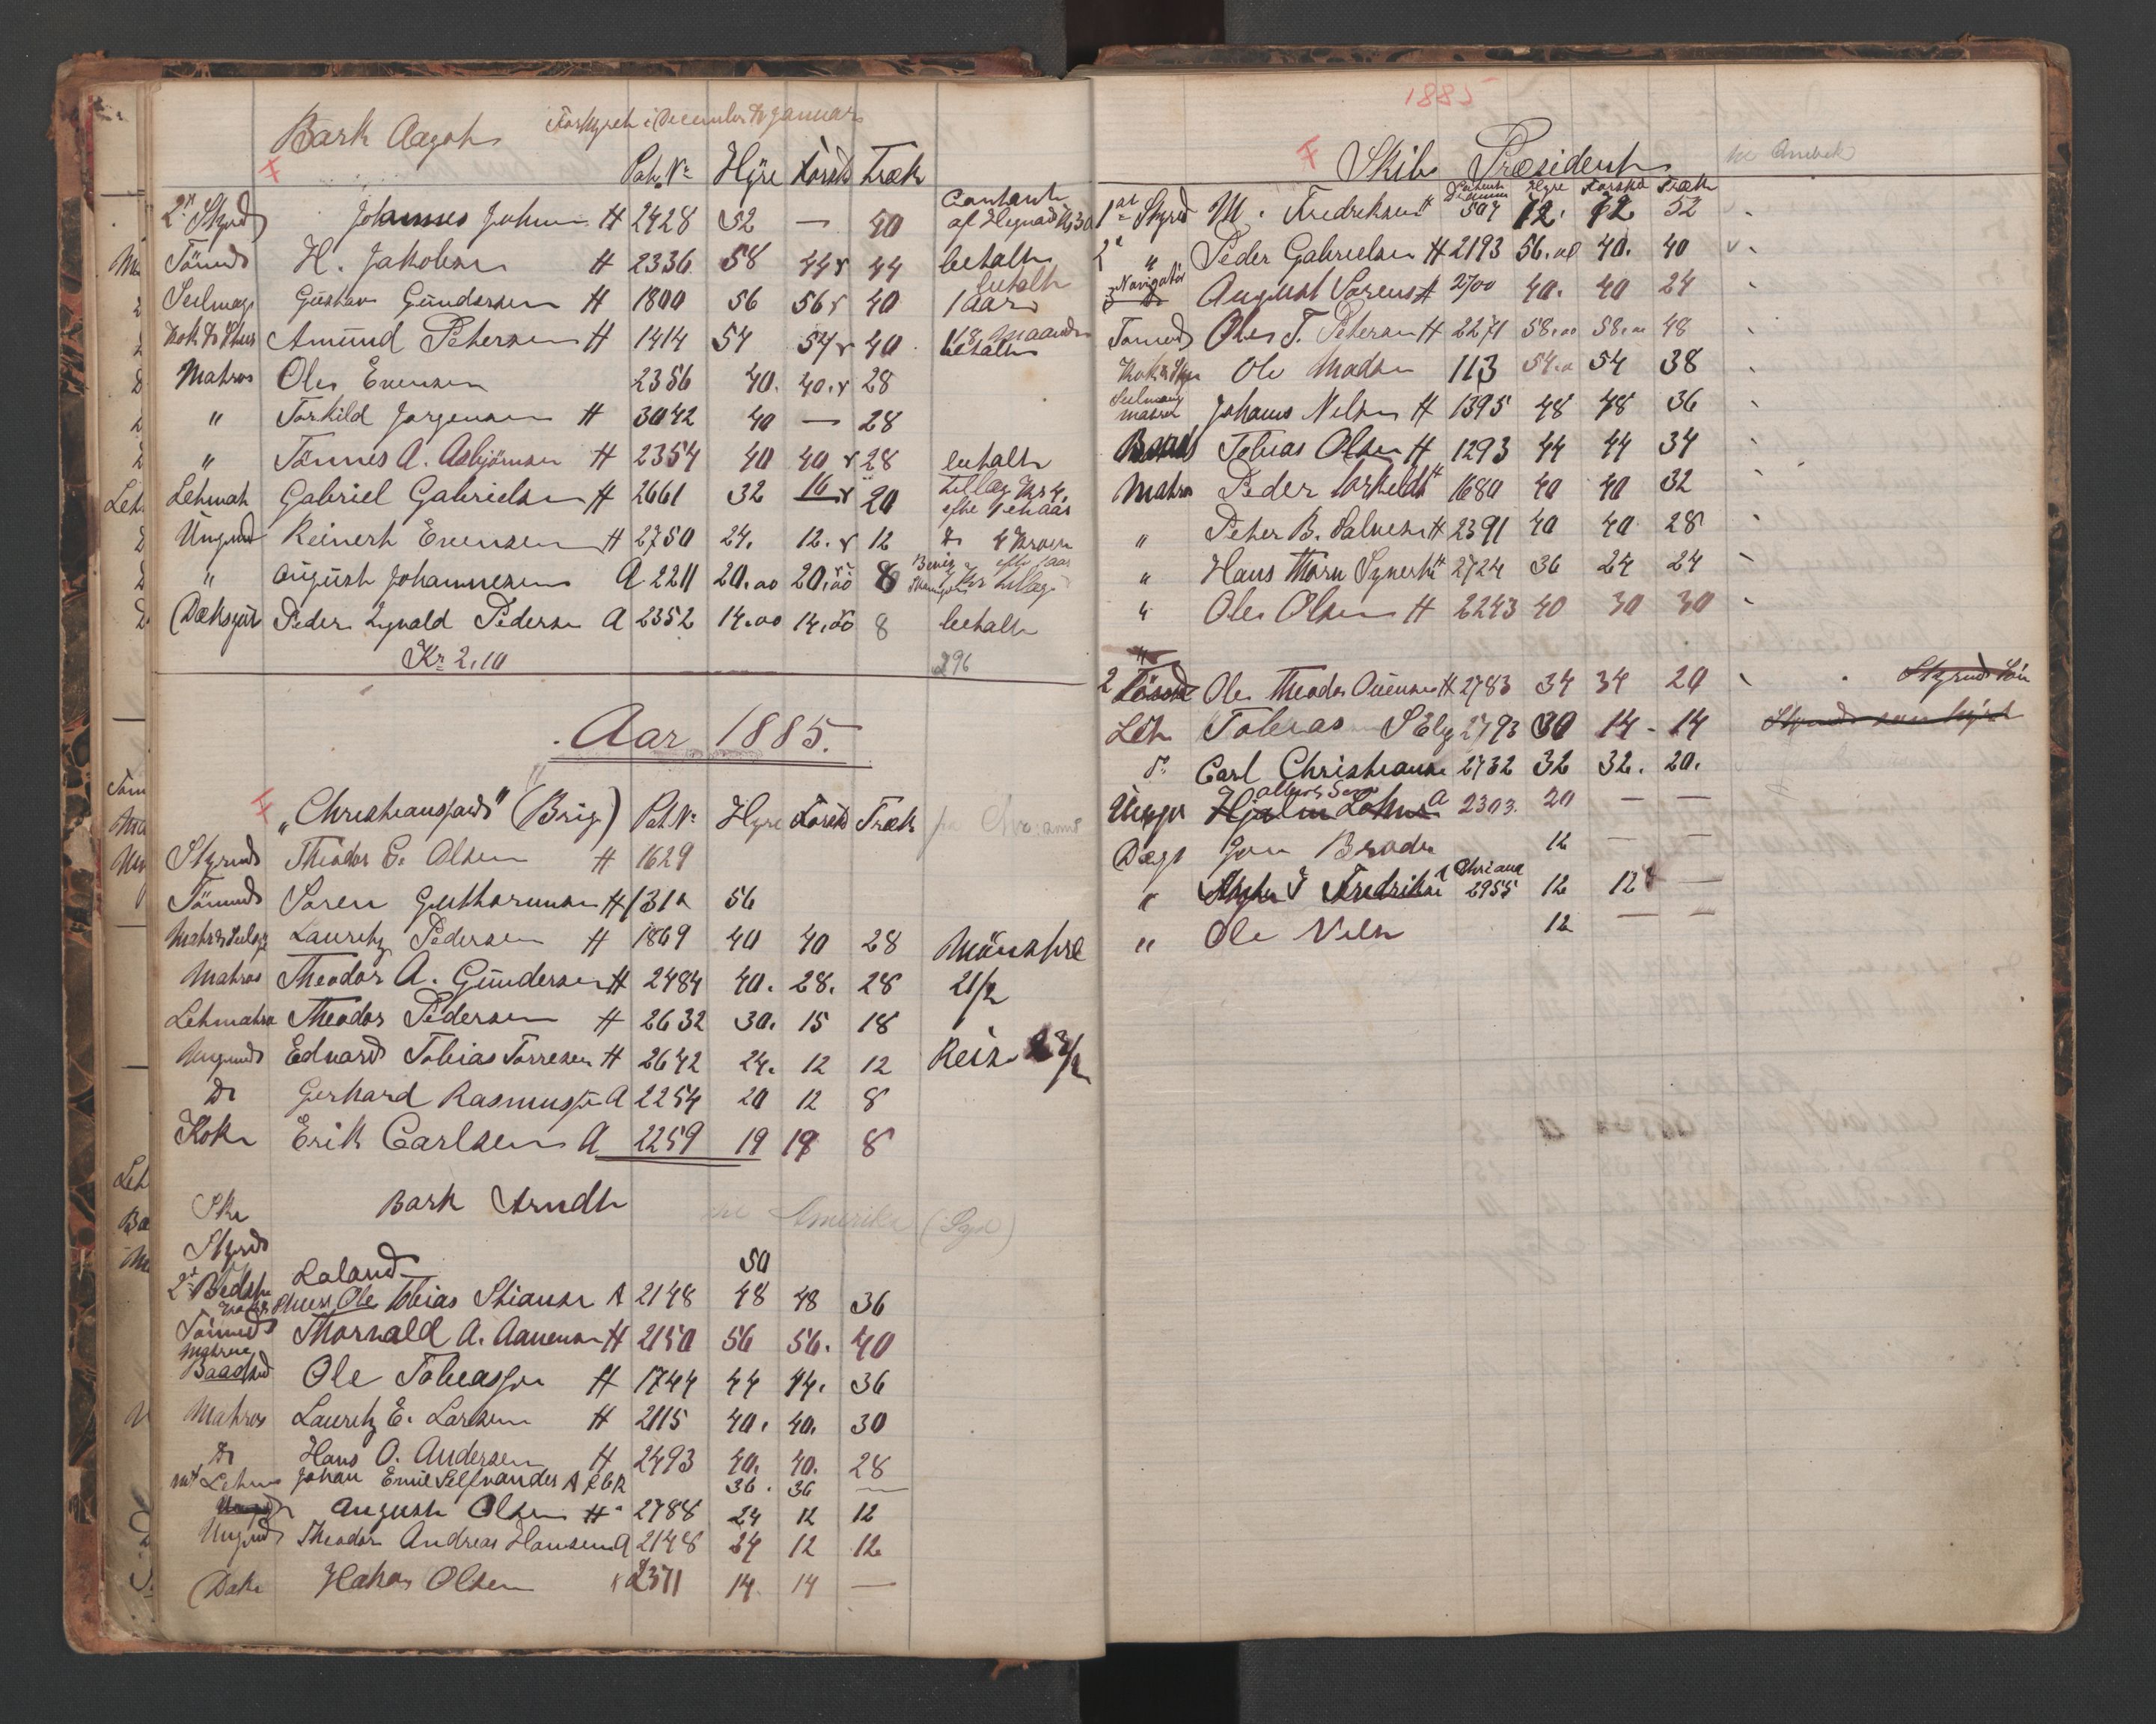 Bark Aagot Forhyret i December & Januar
Pat. No Hyre Forsk Træk
2n Styrd Johannes Johns H 2428 52 — 40 Contant af Hyrnad Kr 30
Tømd H. Jakobsen H 2336 58 44 44 betalt
Seilmag Gustav Gundersen H 1800 56 56 40 1 aar betalt
Kok & Stu Amund Petersen H 1414 54 54 40 18 Maaneder betalt
Matros Ole Evensen 2356 40. 40. 28
" Torkild Jorgensen H 3042 40 — 28
" Tönnes A. Asbjörnsen H 2354 40 40 28 betalt
Letmat Gabriel Gabrielsen H 2661 32 16 20 tillæg Kr 4. efter 1 et aar
Ungmd Reinert Evensen H 2750 24. 12. 12 Do 4 Kroner
" August Johannesen A 2211 20.00 20.00 8 tillæg
Dæksgut Peder Sigvald Pedersen A 2352 14.00 14.00 8 betalt
Kr 2.10 296
Aar 1885.
"Christiansfard" (Brig) Pat No Hyre Forsk Træk
Styrmd Theodor G. Olsen H 1629
Tömmd Soren Guttormsen H 1310 56
Matr & Seilmg Lauritz Pedersen H 1869 40 40 28 Mönstre
Matros Theodor A. Gundersen H 2484 40. 28. 28 21/2
Letmatro Theodor Pedersen H 2632 30. 15 18
Ungmd Edvard Tobias Torresen H 2642 24. 12 12 Reise 28/2
Do Gerhard Rasmussen A 2254 20 12 8
Kok Erik Carlsen A 2259 19 19 8
Bark Arndt til Amerika (Syd)
Ski
Styrd
Laland 50
2n Bedst
Kok & Stuert Ole Tobias Stiansen A 2148 48 48 36
Tömmd Thorvald A. Aanensen H 2150 56 56. 40
Matros Baadsmd Ole Tobiassen H 1744 44 44. 36
Matros Lauritz E. Larsen H 2115 40. 40. 30
Do Hans O. Andersen H 2493 40. 40. 28
Letm Johan Emil Selfvander A 36. 36 —
August Olsen H 2788 24 12 12
Ungmd Theodor Andreas Hansen A 2148 24 12 12
Dæk Hakon Olsen 2371 14. 14 —
1885
Skib Præsident
Patent No Hyre Forskd Træk
1st Styrd M. Fredriksen H 507 72. 72. 52
2n " Peder Gabrielsen H 2193 56.00 40. 40
Navigatör August Sorens H 2700 40. 40 24
Tömmd Ole T. Petersen H 2271 58.00 58.00 48
Kok & Stu Ole Madsen 113 54.0 54 38
Seilmag matros Johans Nilsen H 1395 48 48 36
Baads Tobias Olsen H 1293 44 44 34
Matro Peder Torkelds H 1680 40 40 32
" Peter B. Salvesen H 2391 40 40 28
" Hans Thorn Synert H 2724 36 24 24
" Ole Olsen H 2243 40 30 30
2 Tömmd Ole Theodor Ouensen H 2783 34 34 20 Styrmds Sön
Let Tobias S Elg 2793 30 14 - 14
do Carl Christiansen 2732 32 32. 20.
Ungg A 2303. 20 — —
Dægs Jon Broder 12 — —
" Fredriks Chriand 2955 12 12 —
" Ole Nilsen 12 — —